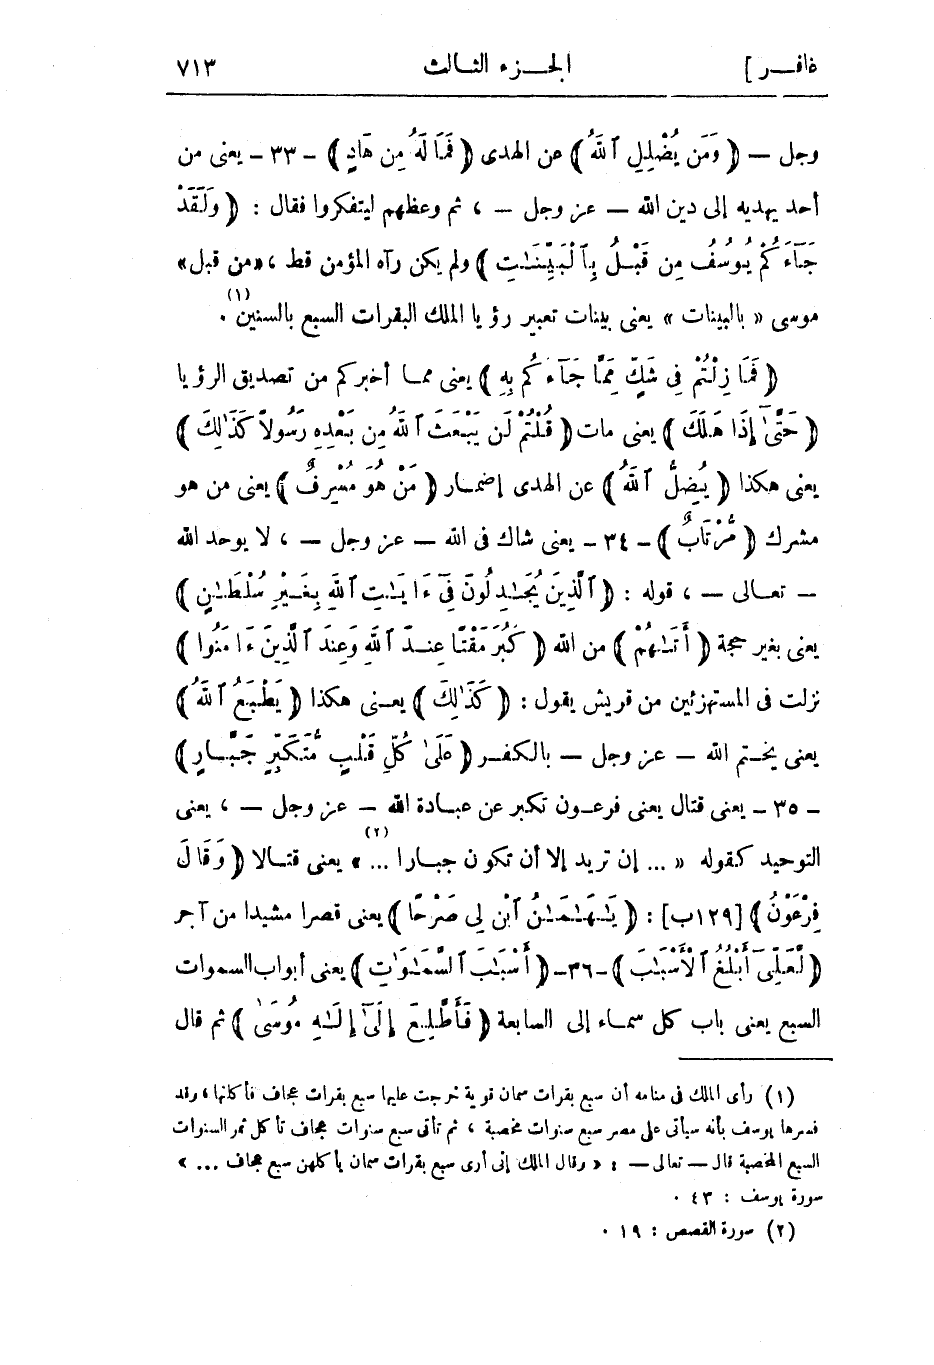 غافر ] الجزء الثالث ٧١٣
وجل — ﴿ وَمَن يُضْلِلِ ٱللَّهُ ﴾ عن الهدى ﴿ فَمَا لَهُ مِن هَادٍ ﴾ – ٣٣ – يعنى من
أحد يهديه إلى دين الله – عز وجل – ، ثم وعظهم ليتفكروا فقال : ﴿ وَلَقَدْ
جَآءَكُمْ يُوسُفُ مِن قَبْلُ بِٱلْبَيِّنَـٰتِ ﴾ ولم يكن رآه المؤمن قط ، «من قبل»
موسى « بالبينات » يعنى بينات تعبير رؤيا الملك البقرات السبع بالسنين (١) .
﴿ فَمَا زِلْتُمْ فِى شَكٍّ مِّمَّا جَآءَكُم بِهِ ﴾ يعنى مما أخبركم من تصديق الرؤيا
﴿ حَتَّىٰٓ إِذَا هَلَكَ ﴾ يعنى مات ﴿ قُلْتُمْ لَن يَبْعَثَ ٱللَّهُ مِن بَعْدِهِ رَسُولاً كَذَٰلِكَ ﴾
يعنى هكذا ﴿ يُضِلُّ ٱللَّهُ ﴾ عن الهدى إضمار ﴿ مَنْ هُوَ مُسْرِفٌ ﴾ يعنى من هو
مشرك ﴿ مُّرْتَابٌ ﴾ – ٣٤ – يعنى شاك فى الله – عز وجل – ، لا يوحد الله
– تعالى – ، قوله : ﴿ ٱلَّذِينَ يُجَـٰدِلُونَ فِىٓ ءَايَـٰتِ ٱللَّهِ بِغَيْرِ سُلْطَـٰنٍ ﴾
يعنى بغير حجة ﴿ أَتَـٰهُمْ ﴾ من الله ﴿ كَبُرَ مَقْتًا عِندَ ٱللَّهِ وَعِندَ ٱلَّذِينَ ءَامَنُوا ﴾
نزلت فى المستهزئين من قريش يقول : ﴿ كَذَٰلِكَ ﴾ يعنى هكذا ﴿ يَطْبَعُ ٱللَّهُ ﴾
يعنى يختم الله – عز وجل – بالكفر ﴿ عَلَىٰ كُلِّ قَلْبِ مُتَكَبِّرٍ جَبَّارٍ ﴾
– ٣٥ – يعنى قتال يعنى فرعون تكبر عن عبادة الله – عز وجل – ، يعنى
التوحيد كقوله « ... إن تريد إلا أن تكون جبارا ... » (٢) يعنى قتالا ﴿ وَقَالَ
فِرْعَوْنُ ﴾ [١٢٩ب] : ﴿ يَـٰهَـٰمَـٰنُ ٱبْنِ لِى صَرْحًا ﴾ يعنى قصرا مشيدا من آجر
﴿ لَّعَلِّىٓ أَبْلُغُ ٱلْأَسْبَـٰبَ ﴾ –٣٦– ﴿ أَسْبَـٰبَ ٱلسَّمَـٰوَٰتِ ﴾ يعنى أبواب السموات
السبع يعنى باب كل سماء إلى السابعة ﴿ فَأَطَّلِعَ إِلَىٰٓ إِلَـٰهِ مُوسَىٰ ﴾ ثم قال
(١) رأى الملك فى منامه أن سبع بقرات سمان قوية خرجت عليها سبع بقرات عجاف فأكلتها ، وقد
فسرها يوسف بأنه سيأتى على مصر سبع سنوات مخصبة ، ثم تأتى سبع سنوات عجاف تأكل ثمر السنوات
السبع المخصبة قال – تعالى – : « وقال الملك إنى أرى سبع بقرات سمان يأكلهن سبع عجاف ... »
سورة يوسف : ٤٣ .
(٢) سورة القصص : ١٩ .